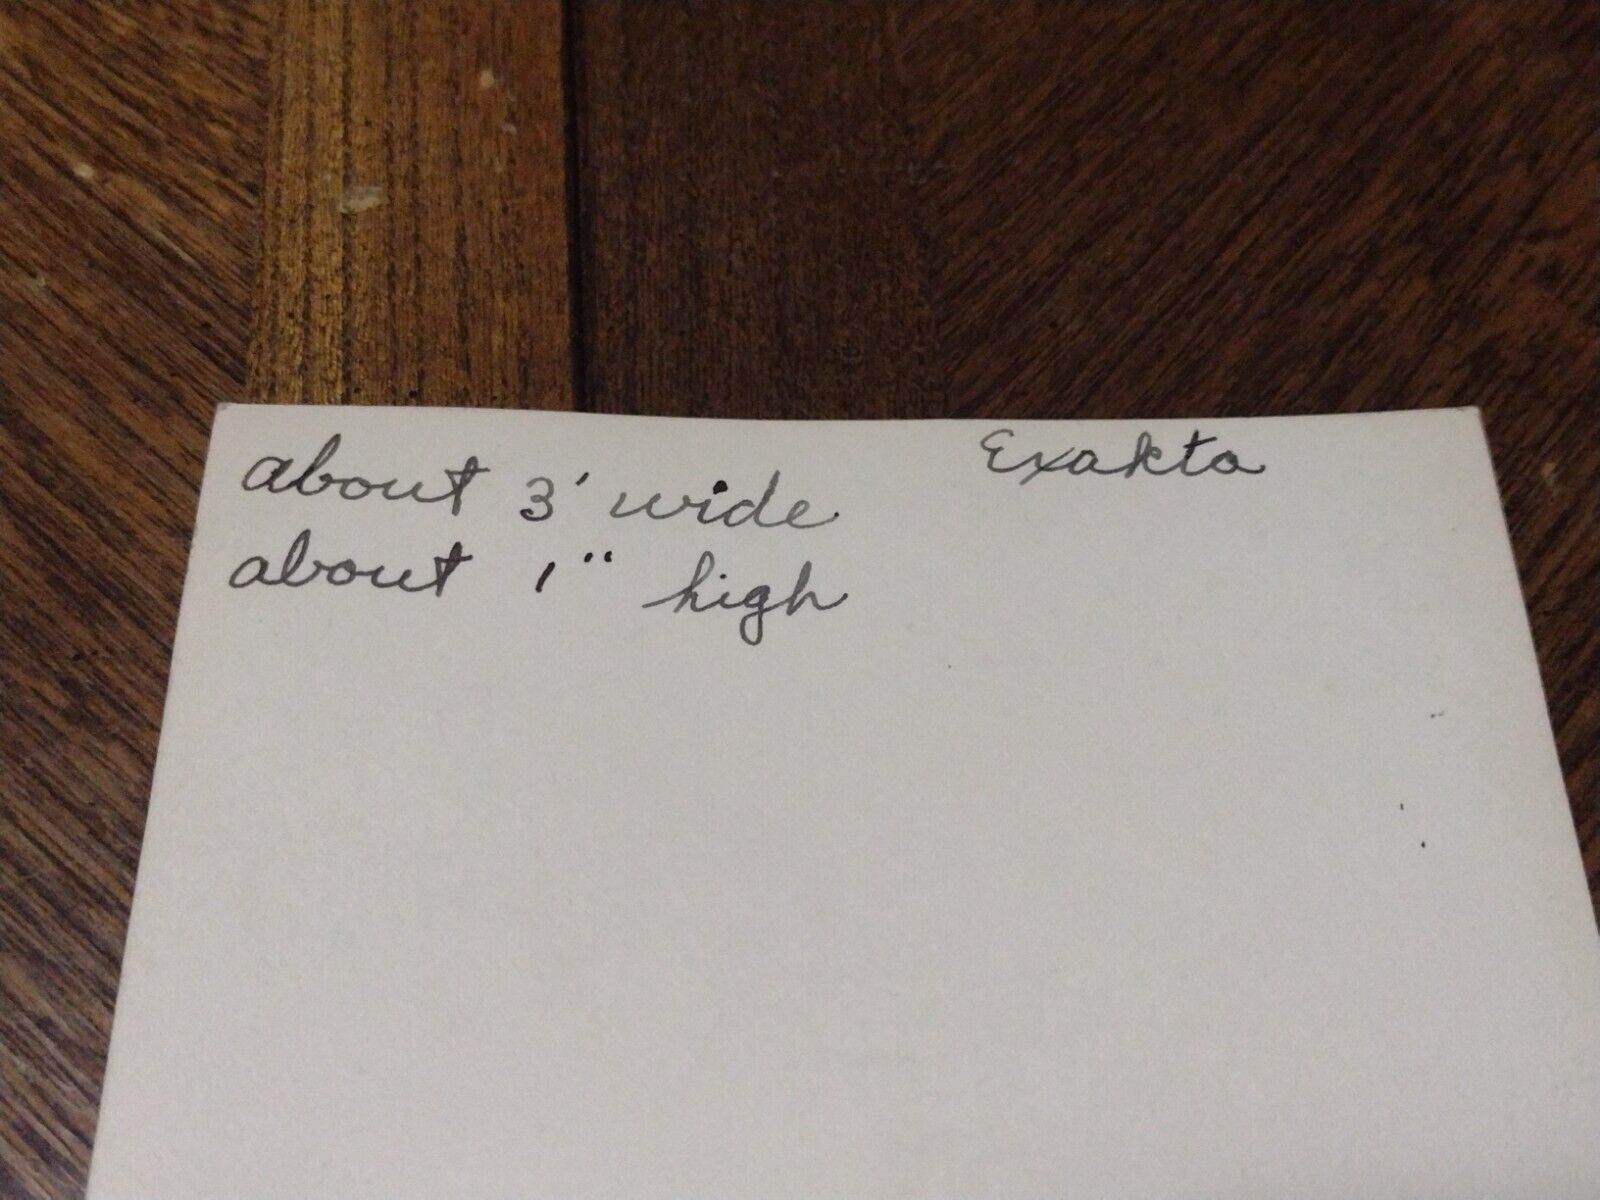 about 3' wide
about 1" high
Exakta